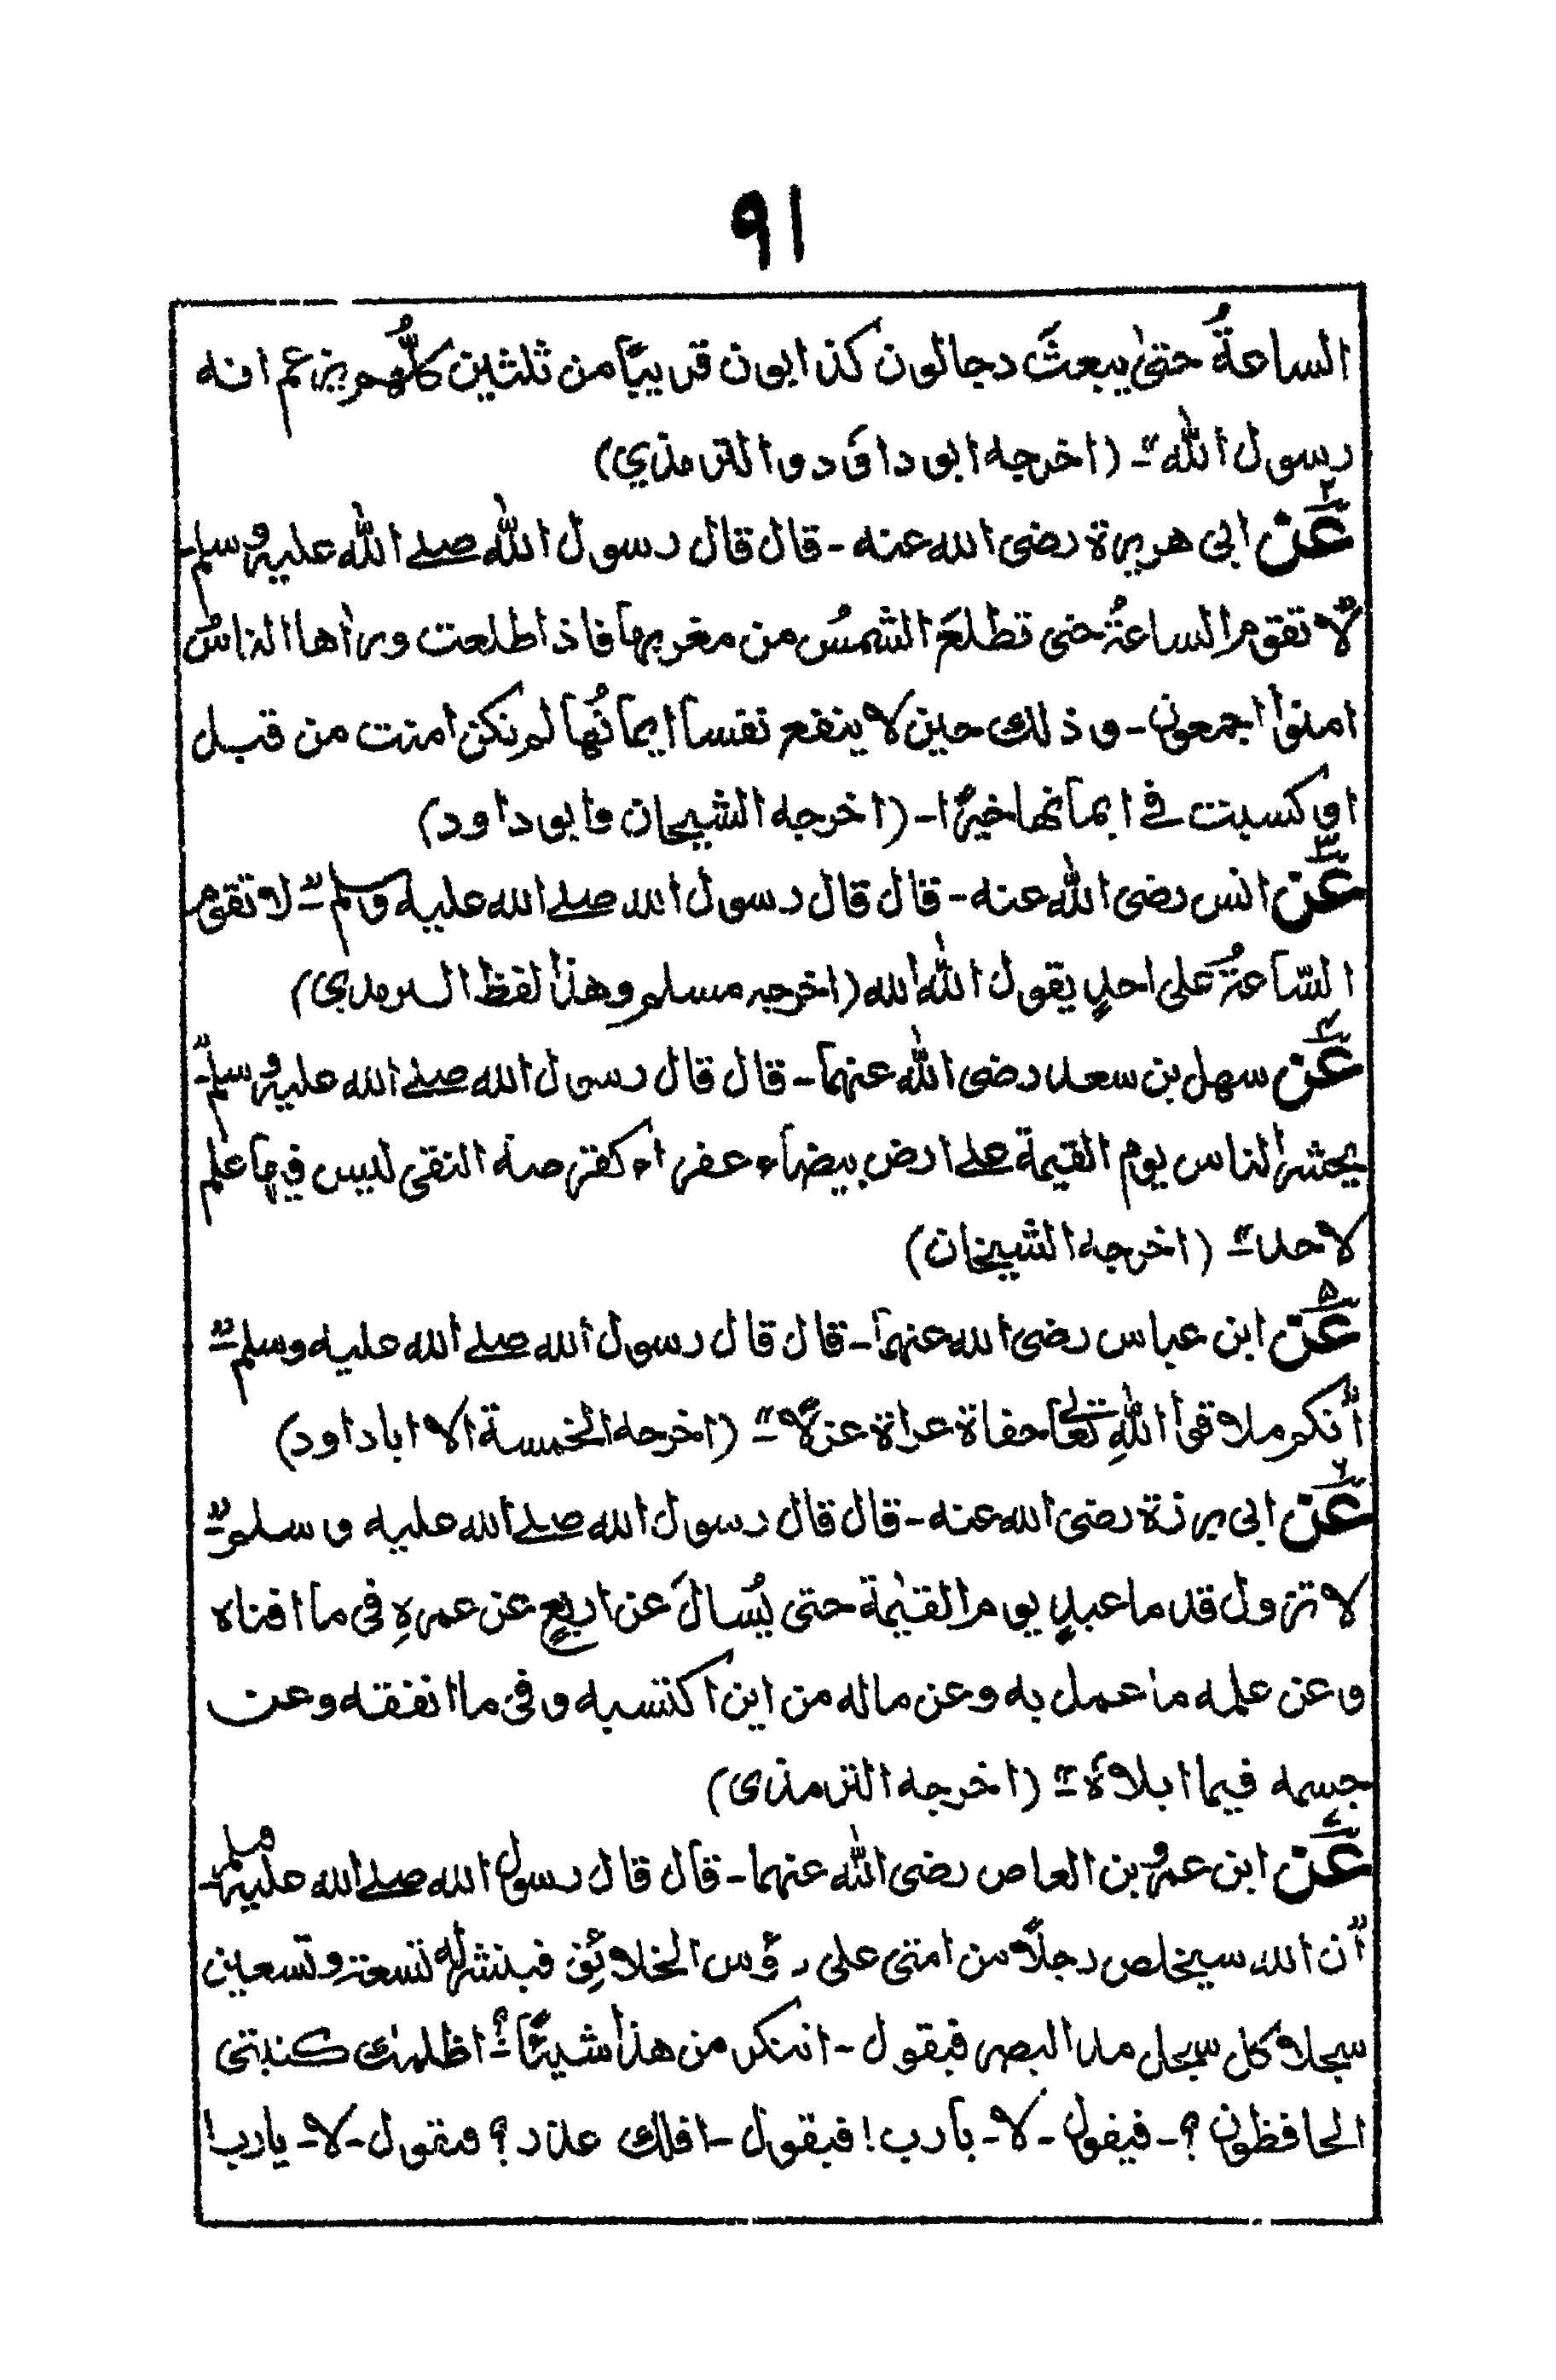 ٩١
الساعةُ حتىٰ يبعثَ دجالون كذابون قريبًا من ثلثين كلُّهم يزعم انه
رسول الله"ـ (اخرجه ابو داؤد والترمذي)
٢ عَن ابی هريرة رضی الله عنه ـ قال قال رسول الله صلے الله عليه وسلم ـ
"لا تقوم الساعةُ حتی تطلعَ الشمسُ من مغربها فاذا طلعت وراٰها الناسُ
امنوا اجمعون ـ وذلك حين لا ينفع نفسا ايمانُها لم تكن امنت من قبل
او كسبت فے ايمانها خيرًا ـ (اخرجه الشيخان وابو داود)
٣ عَن انس رضی الله عنه ـ قال قال رسول الله صلے الله عليه وسلم ـ" لا تقوم
السّاعةُ علی احدٍ يقول الله الله (اخرجه مسلم وهذا لفظ الترمذي)
٤ عَن سهل بن سعد رضی الله عنهما ـ قال قال رسول الله صلے الله عليه وسلم ـ"
يحشر الناس يوم القيمة علے ارض بيضاء عفراء كقرصة النقی ليس فيها علم
لاحد"ـ (اخرجه الشيخان)
٥ عَن ابن عباس رضی الله عنهما ـ قال قال رسول الله صلے الله عليه وسلم ـ"
"انكم ملاقوا اللهِ تعالے حفاة عراة عزلًا"ـ (اخرجه الخمسة الا ابا داود)
٦ عَن ابی برزة رضی الله عنه ـ قال قال رسول الله صلے الله عليه وسلم ـ"
لا تزول قدما عبدٍ يوم القيٰمة حتی يُسالَ عن اربعٍ عن عمرهِ فی ما افناه
وعن علمه ما عمل به وعن ماله من اين اكتسبه وفی ما انفقه وعن
جسمه فيما ابلاهُ"ـ (اخرجه الترمذی)
٧ عَن ابن عمرو بن العاص رضی الله عنهما ـ قال قال رسول الله صلے الله عليه وسلم ـ
"ان الله سيخلص رجلًا من امتی علی رؤس الخلائقِ فينشر له تسعة وتسعين
سجلا كل سجل مد البصر فيقول ـ اتنكر من هذا شيئًا؟ـ اظلمتك كتبتی
الحافظون؟ـ فيقول ـ لا ـ يا رب! فيقول ـ افلك عذر؟ فيقول ـ لا ـ يا رب!